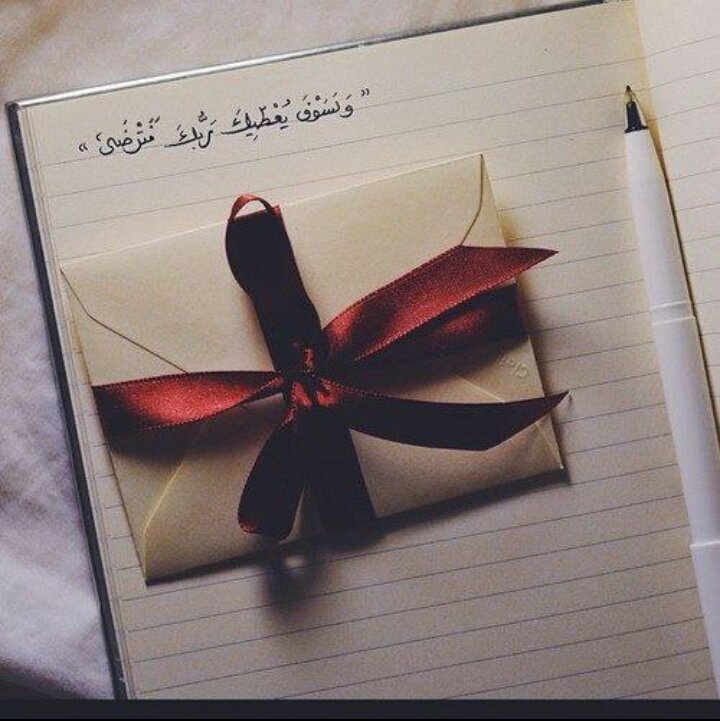 " وَلَسَوْفَ يُعْطِيكَ رَبُّكَ فَتَرْضَىٰ "